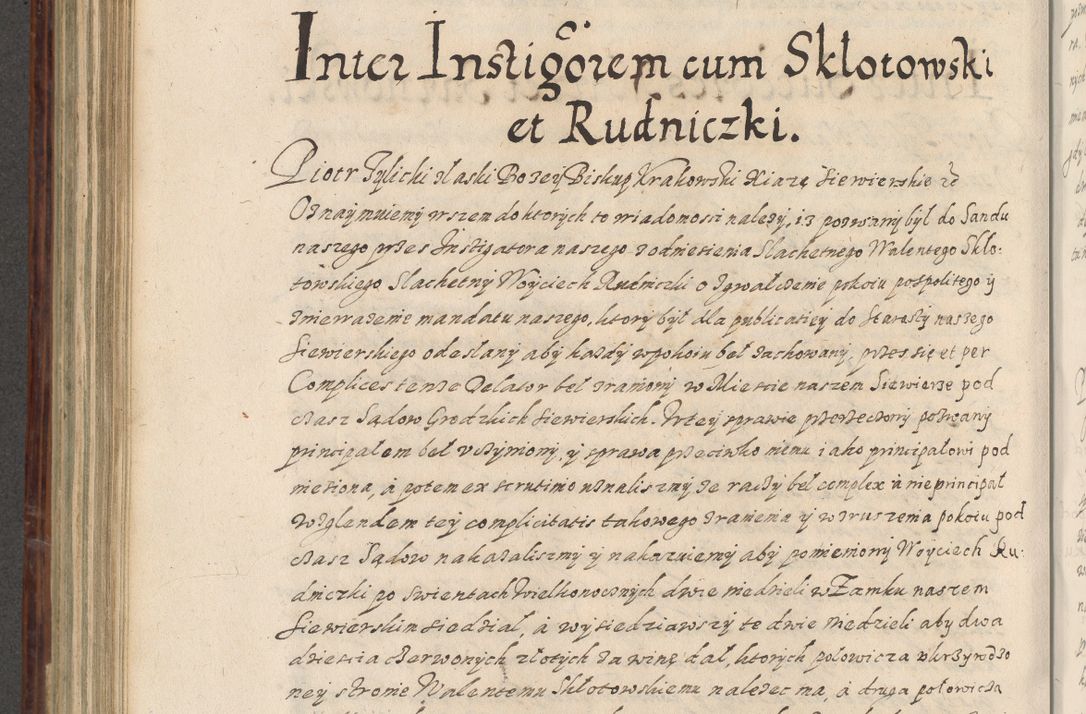 Inter Instigorem cum Skłotowski
et Rudniczki.
Piotr Tylicki z łaski Bozey Biskup Krakowski Xiazę Siewierskie
Oznaymuiemy wszem do ktorych to wiadomosci nalezy, iz pozwany był do Sandu
naszego przes Instigatora naszego z odniesienia Slachetnego Walentego Skło-
towskiego Slachetny Woyciech Rudniczki o zgwałczenie pokoiu pospolitego y
znierazenie mandatu naszego, ktory był dla publicatiey do Starosty naszego
Siewierskiego odesłany aby kazdy w pokoiu beł zachowany, przes się et per
Complices tenze Delator beł zraniony w Miescie naszem Siewierze pod
czasz Sądow Grodzkich Siewierskich. W tey sprawie przerzeczony pozwany
principałem beł uczyniony, y sprawa przeciwko niemu iako principałowi pod
niesiona, a potem ex scrutinio uznaliszmy ze raczy beł complex a nie principał
Wzglendem tey complicitatis takowego zranienia y wzruszenia pokoiu pod
czasz Sądow nakazaliszmy y nakazuiemy aby pomieniony Woyciech Ru-
dniczki po Swientach Wielkonocznych dwie niedzieli w Zamku naszem
Siewierskim siedział, a wysiedziawszy te dwie niedzieli aby dwa
dziescia czerwonych złotych za winę dał, ktorych połowicza ukrzywdzo
ney stronie Walentemu Skłotowskiemu nalezec ma, a druga połowicza